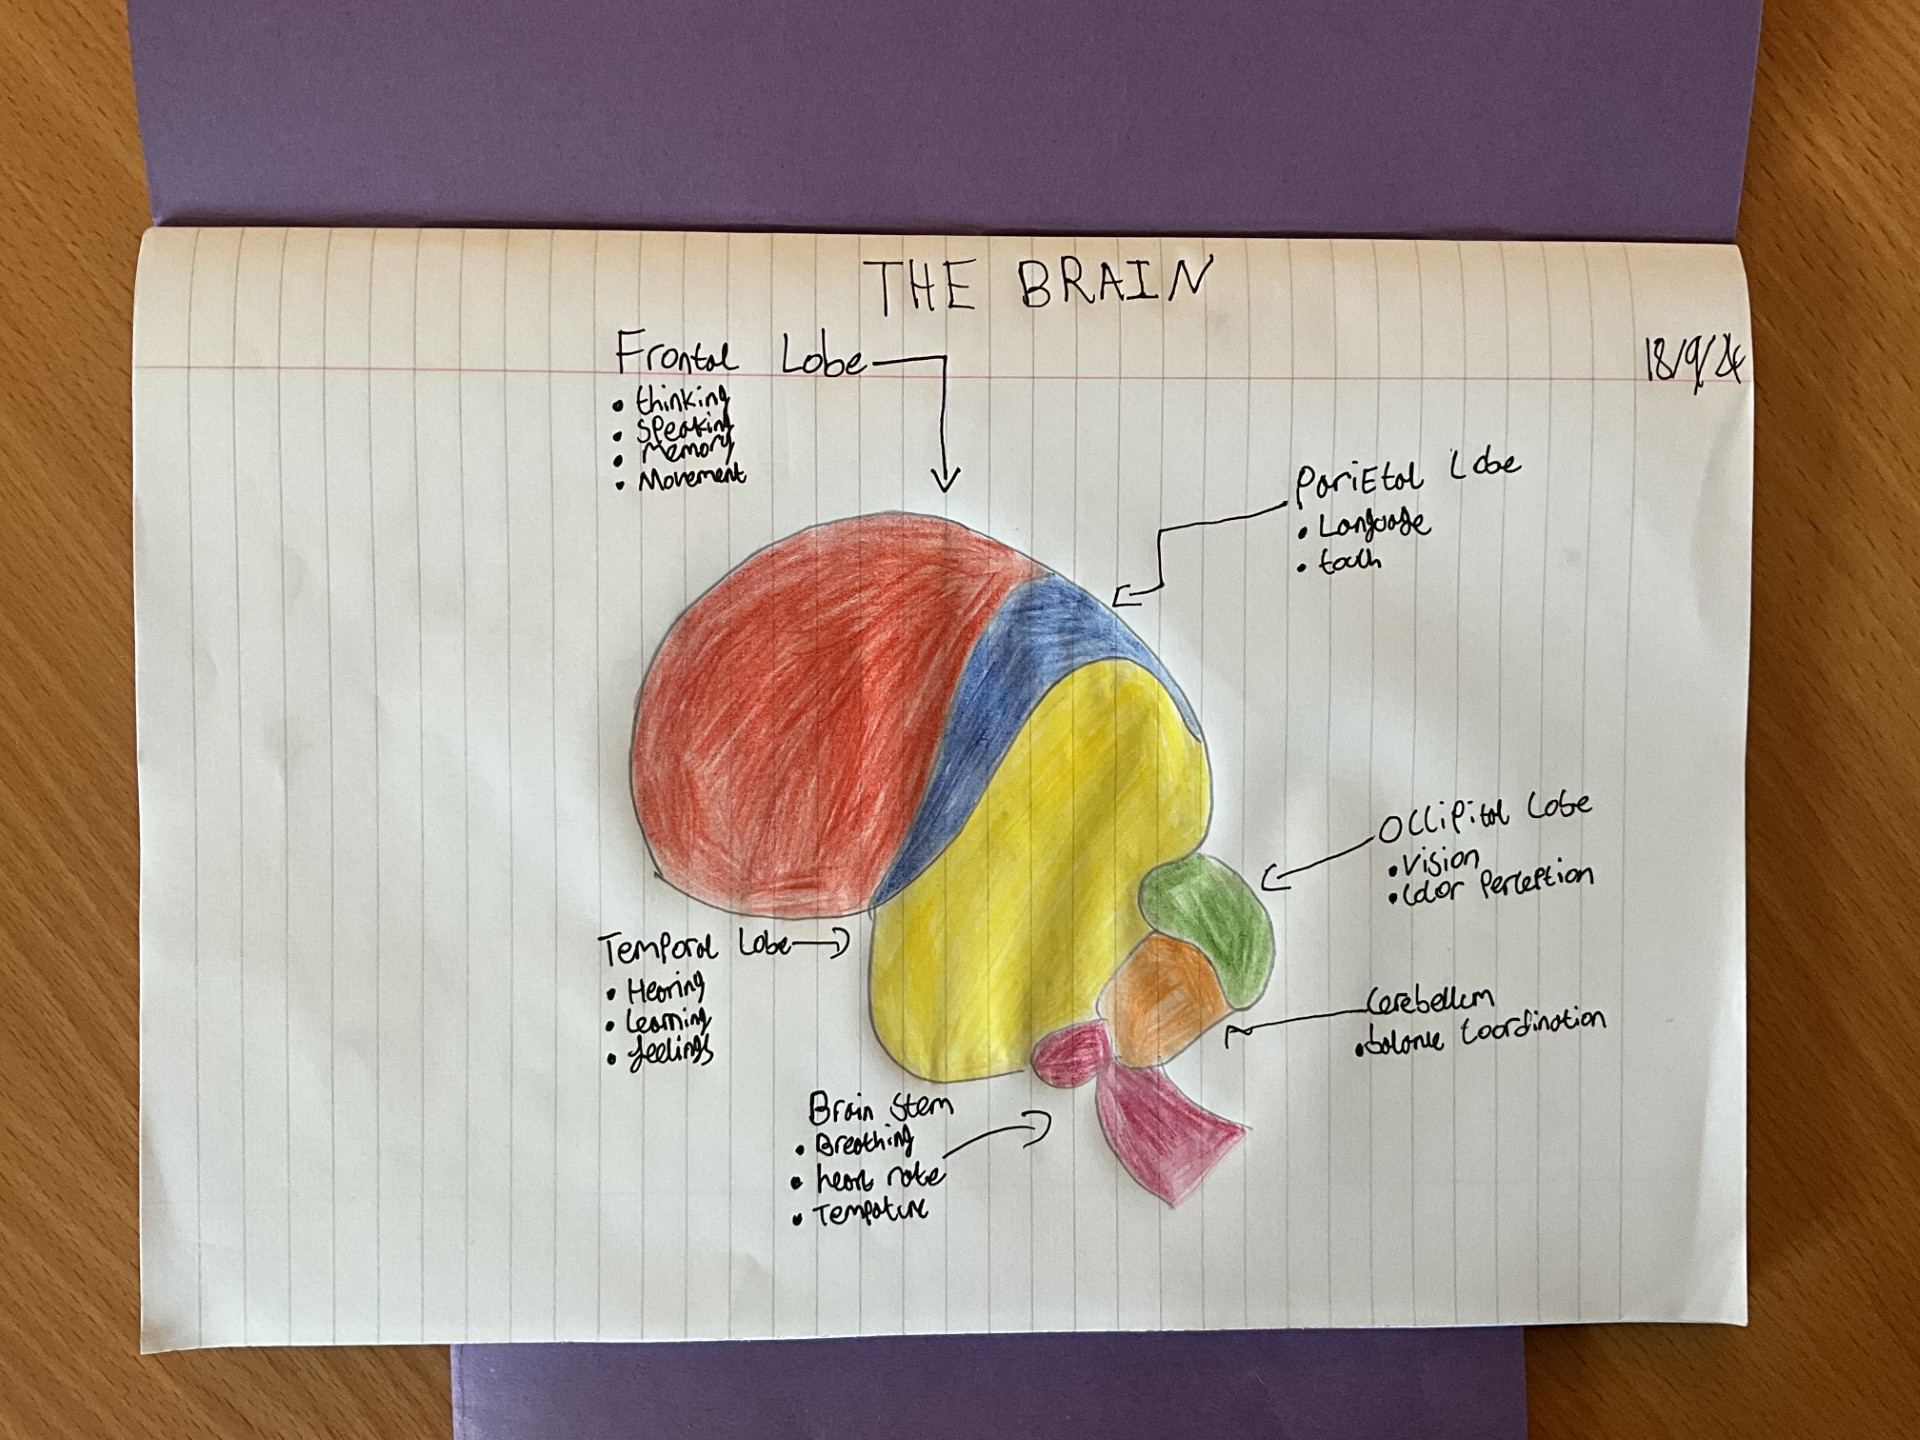 THE BRAIN
18/9/24
Frontal Lobe
• thinking
• Speaking
• Memory
• Movement
PariEtal Lobe
• Language
• touch
Occipital Lobe
• Vision
• Color Perception
Temporal Lobe
• Hearing
• Learning
• feelings
Cerebellum
• balance Coordination
Brain Stem
• Breathing
• heart rate
• Tempature